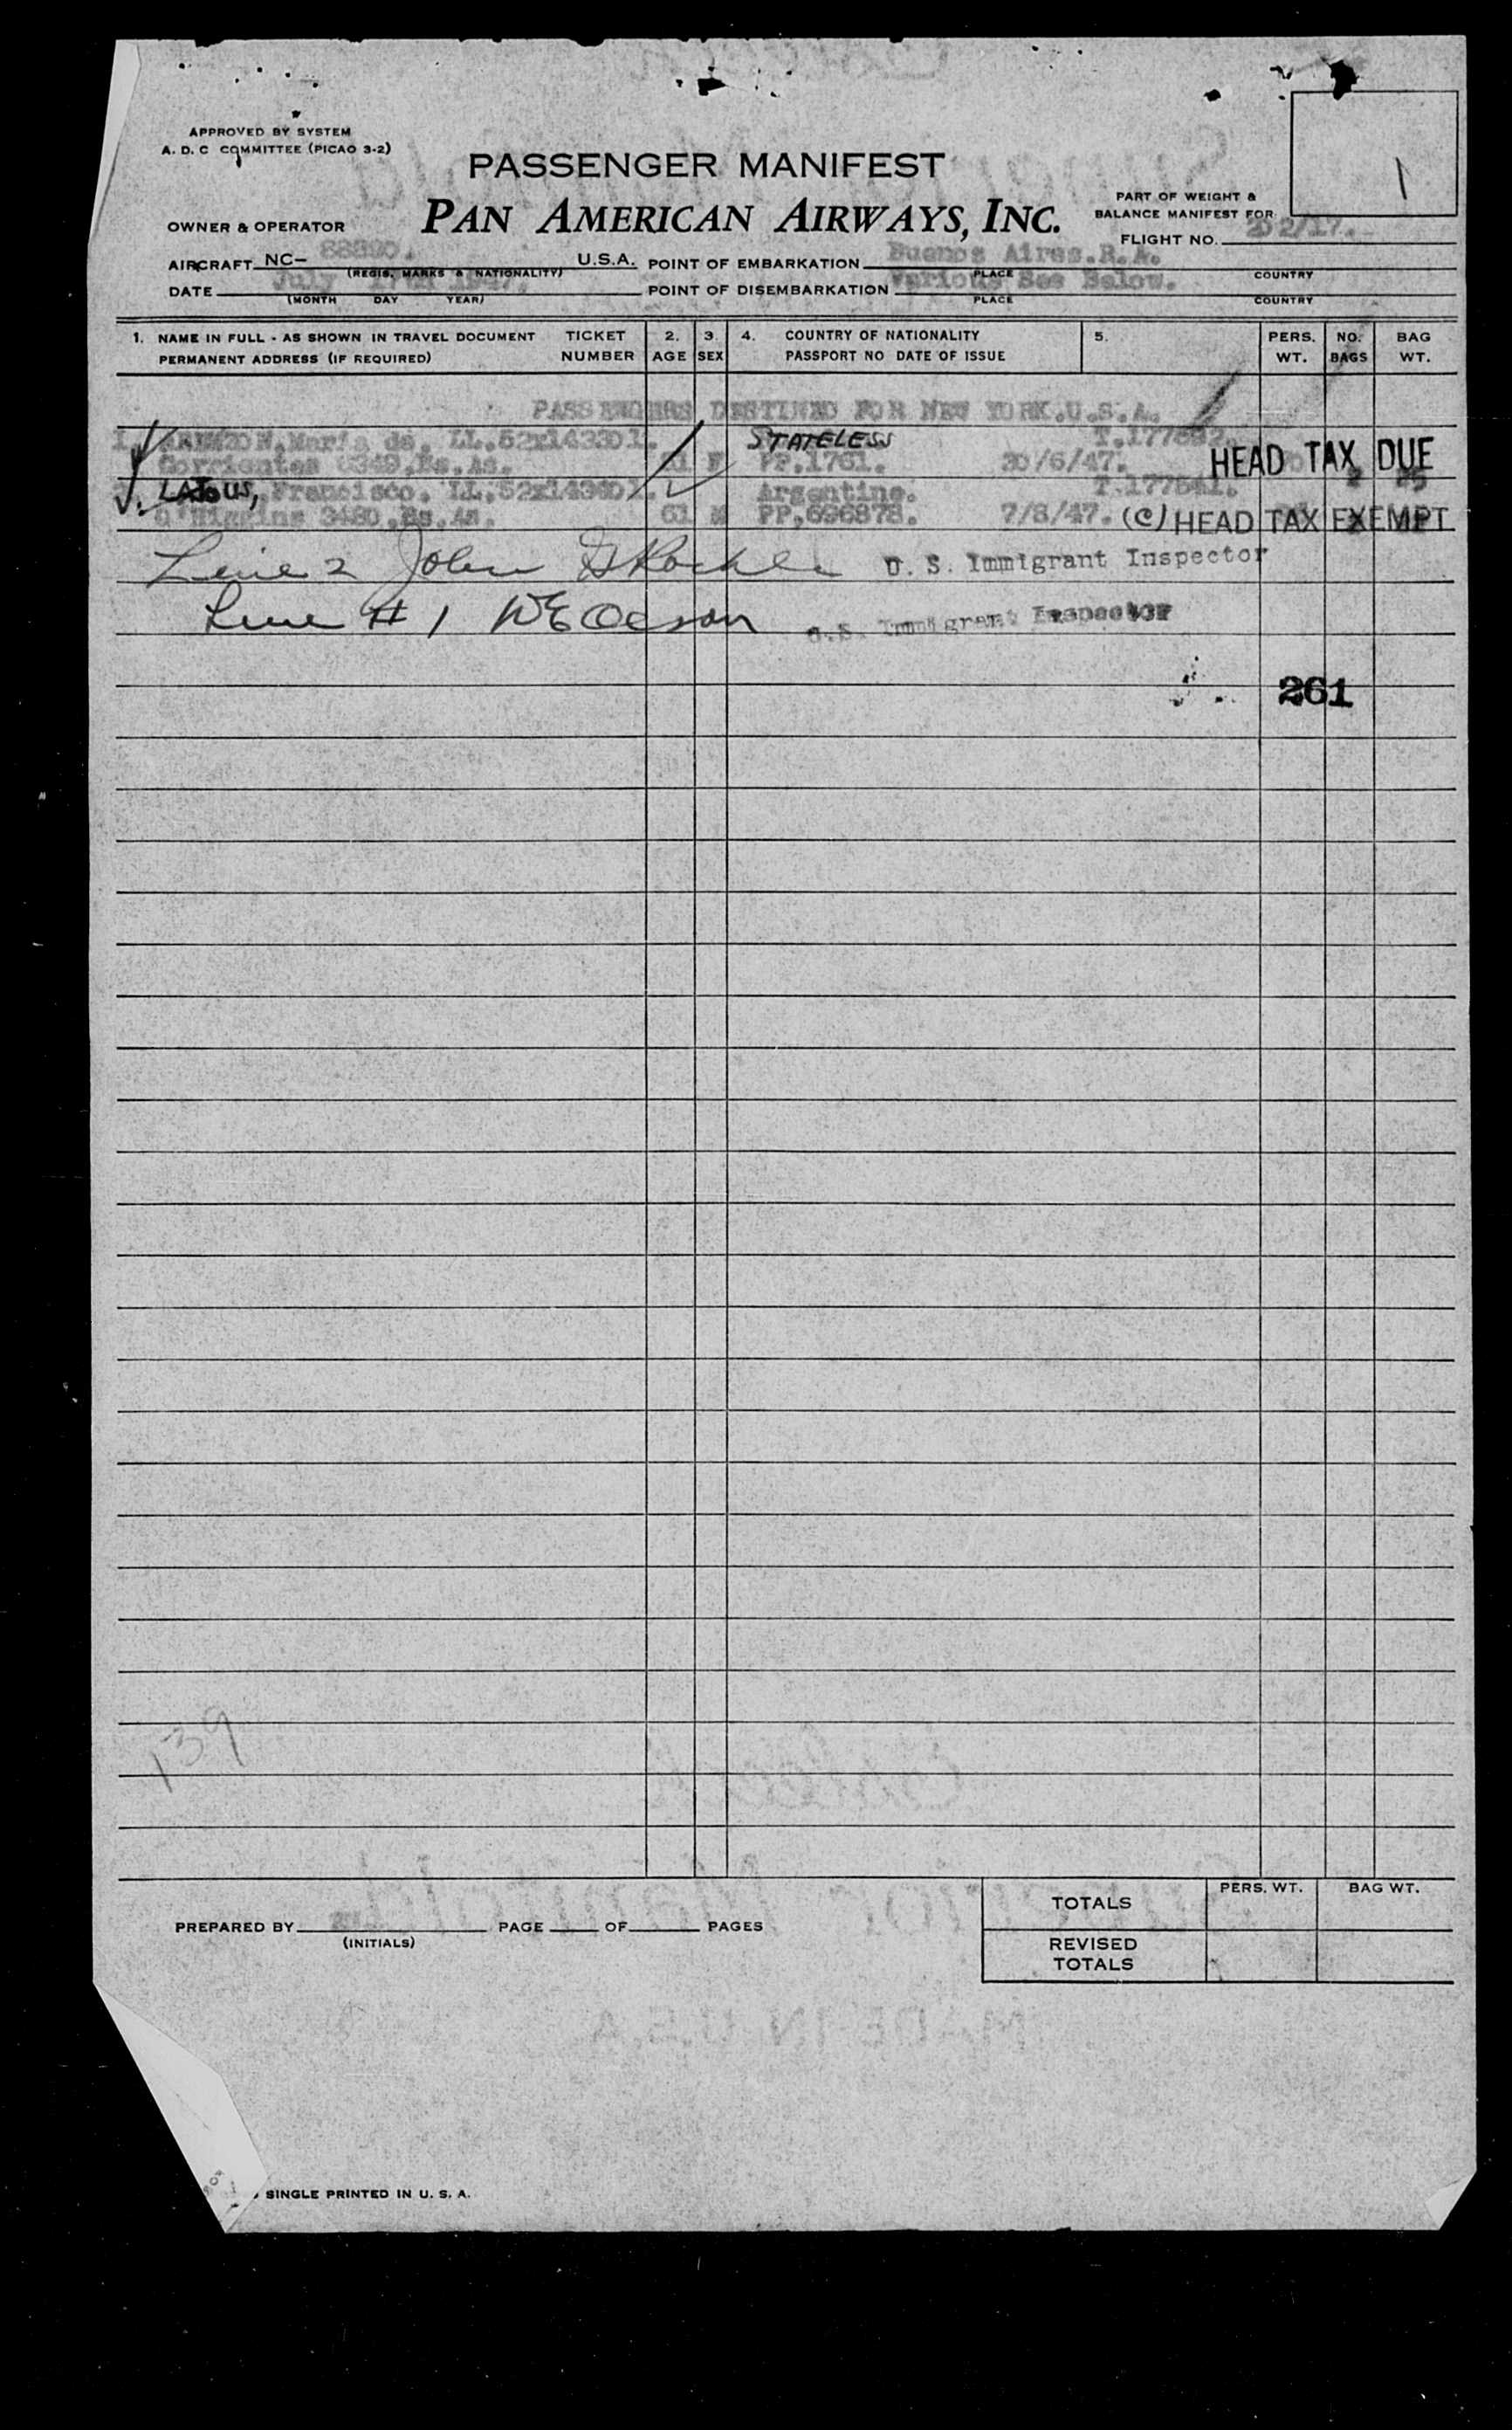 APPROVED BY SYSTEM
A. D. C COMMITTEE (PICAO 3-2)
PASSENGER MANIFEST
PAN AMERICAN AIRWAYS, INC.
1
OWNER & OPERATOR
PART OF WEIGHT &
BALANCE MANIFEST FOR
FLIGHT NO. 202/17.
AIRCRAFT NC- 88890. U.S.A. POINT OF EMBARKATION Buenos Aires.R.A.
(REGIS. MARKS & NATIONALITY) PLACE COUNTRY
DATE July 17th 1947. POINT OF DISEMBARKATION Various See Below.
(MONTH DAY YEAR) PLACE COUNTRY
1. NAME IN FULL - AS SHOWN IN TRAVEL DOCUMENT TICKET 2. 3. 4. COUNTRY OF NATIONALITY 5. PERS. NO. BAG
PERMANENT ADDRESS (IF REQUIRED) NUMBER AGE SEX PASSPORT NO DATE OF ISSUE WT. BAGS WT.
PASSENGERS DESTINED FOR NEW YORK.U.S.A.
1. Maria de. LL.52x143301. STATELESS
Corrientes Bs.As. F PP.1761. 20/6/47. HEAD TAX DUE
LAJOUS, Francisco. LL.52x143601. Argentine. T.177541.
O'Higgins 3480.Bs.As. 61 M PP.696878. 7/8/47. (C) HEAD TAX EXEMPT
Line 2 John U. S. Immigrant Inspector
Line # 1 WE Olson U.S. Immigrant Inspector
261
139
TOTALS PERS. WT. BAG WT.
PREPARED BY PAGE OF PAGES
(INITIALS)
REVISED
TOTALS
SINGLE PRINTED IN U. S. A.